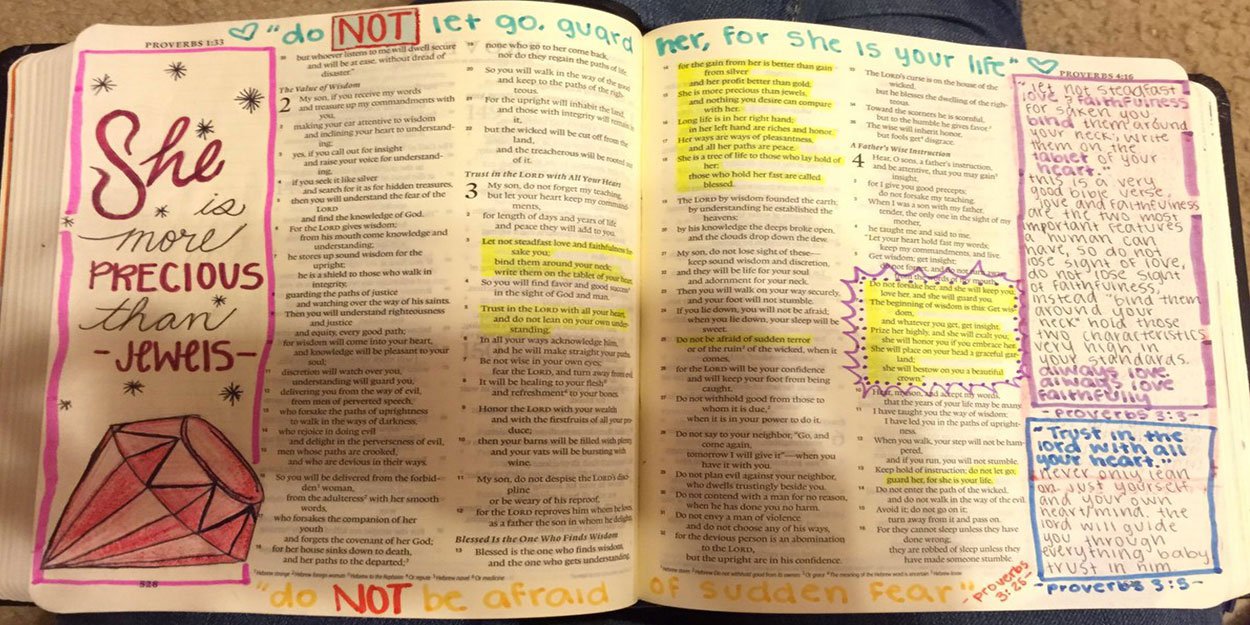 "do NOT let go. guard her, for she is your life"
PROVERBS 1:33
She
is
more
PRECIOUS
than
-JEWELS-
33 but whoever listens to me will dwell secure
and will be at ease, without dread of
disaster."
The Value of Wisdom
2 My son, if you receive my words
and treasure up my commandments with
you,
2 making your ear attentive to wisdom
and inclining your heart to understand-
ing;
3 yes, if you call out for insight
and raise your voice for understand-
ing,
4 if you seek it like silver
and search for it as for hidden treasures,
5 then you will understand the fear of the
LORD
and find the knowledge of God.
6 For the LORD gives wisdom;
from his mouth come knowledge and
understanding;
7 he stores up sound wisdom for the
upright;
he is a shield to those who walk in
integrity,
8 guarding the paths of justice
and watching over the way of his saints.
9 Then you will understand righteousness
and justice
and equity, every good path;
10 for wisdom will come into your heart,
and knowledge will be pleasant to your
soul;
11 discretion will watch over you,
understanding will guard you,
12 delivering you from the way of evil,
from men of perverted speech,
13 who forsake the paths of uprightness
to walk in the ways of darkness,
14 who rejoice in doing evil
and delight in the perverseness of evil,
15 men whose paths are crooked,
and who are devious in their ways.
16 So you will be delivered from the forbid-
den woman,
from the adulteress with her smooth
words,
17 who forsakes the companion of her
youth
and forgets the covenant of her God;
18 for her house sinks down to death,
and her paths to the departed;
19 none who go to her come back,
nor do they regain the paths of life.
20 So you will walk in the way of the good
and keep to the paths of the righ-
teous.
21 For the upright will inhabit the land,
and those with integrity will remain in
it,
22 but the wicked will be cut off from the
land,
and the treacherous will be rooted out
of it.
Trust in the LORD with All Your Heart
3 My son, do not forget my teaching,
but let your heart keep my command-
ments,
2 for length of days and years of life
and peace they will add to you.
3 Let not steadfast love and faithfulness
sake you;
bind them around your neck;
write them on the tablet of your heart.
4 So you will find favor and good success
in the sight of God and man.
5 Trust in the LORD with all your heart,
and do not lean on your own under-
standing.
6 In all your ways acknowledge him,
and he will make straight your paths.
7 Be not wise in your own eyes;
fear the LORD, and turn away from evil.
8 It will be healing to your flesh
and refreshment to your bones.
9 Honor the LORD with your wealth
and with the firstfruits of all your pro-
duce;
10 then your barns will be filled with plenty,
and your vats will be bursting with
wine.
11 My son, do not despise the LORD's disci-
pline
or be weary of his reproof,
12 for the LORD reproves him whom he loves,
as a father the son in whom he delights.
Blessed Is the One Who Finds Wisdom
13 Blessed is the one who finds wisdom,
and the one who gets understanding,
528
14 for the gain from her is better than gain
from silver
and her profit better than gold.
15 She is more precious than jewels,
and nothing you desire can compare
with her.
16 Long life is in her right hand;
in her left hand are riches and honor.
17 Her ways are ways of pleasantness,
and all her paths are peace.
18 She is a tree of life to those who lay hold of
her;
those who hold her fast are called
blessed.
19 The LORD by wisdom founded the earth;
by understanding he established the
heavens;
20 by his knowledge the deeps broke open,
and the clouds drop down the dew.
21 My son, do not lose sight of these—
keep sound wisdom and discretion,
22 and they will be life for your soul
and adornment for your neck.
23 Then you will walk on your way securely,
and your foot will not stumble.
24 If you lie down, you will not be afraid;
when you lie down, your sleep will be
sweet.
25 Do not be afraid of sudden terror
or of the ruin of the wicked, when it
comes,
26 for the LORD will be your confidence
and will keep your foot from being
caught.
27 Do not withhold good from those to
whom it is due,
when it is in your power to do it.
28 Do not say to your neighbor, "Go, and
come again,
tomorrow I will give it"—when you
have it with you.
29 Do not plan evil against your neighbor,
who dwells trustingly beside you.
30 Do not contend with a man for no reason,
when he has done you no harm.
31 Do not envy a man of violence
and do not choose any of his ways,
32 for the devious person is an abomination
to the LORD,
but the upright are in his confidence.
33 The LORD's curse is on the house of the
wicked,
but he blesses the dwelling of the righ-
teous.
34 Toward the scorners he is scornful,
but to the humble he gives favor.
35 The wise will inherit honor,
but fools get disgrace.
A Father's Wise Instruction
4 Hear, O sons, a father's instruction,
and be attentive, that you may gain
insight,
2 for I give you good precepts;
do not forsake my teaching.
3 When I was a son with my father,
tender, the only one in the sight of my
mother,
4 he taught me and said to me,
"Let your heart hold fast my words;
keep my commandments, and live.
5 Get wisdom; get insight;
6 Do not forsake her, and she will keep you;
love her, and she will guard you.
7 The beginning of wisdom is this: Get wis-
dom,
and whatever you get, get insight.
8 Prize her highly, and she will exalt you;
she will honor you if you embrace her.
9 She will place on your head a graceful gar-
land;
she will bestow on you a beautiful
crown."
10 Hear, my son, and accept my words,
that the years of your life may be many.
11 I have taught you the way of wisdom;
I have led you in the paths of upright-
ness.
12 When you walk, your step will not be ham-
pered,
and if you run, you will not stumble.
13 Keep hold of instruction; do not let go;
guard her, for she is your life.
14 Do not enter the path of the wicked,
and do not walk in the way of the evil.
15 Avoid it; do not go on it;
turn away from it and pass on.
16 For they cannot sleep unless they have
done wrong;
they are robbed of sleep unless they
have made someone stumble.
PROVERBS 4:16
"let not steadfast
love & faithfulness
for saken you
bind them around
your neck, write
them on the
tablet of your
heart."
this is a very
good bible verse,
love and faithfulness
are the two most
important features
a human can
have, so do not
lose sight of love,
do not lose sight
of faithfulness,
instead "bind them
around your
neck" hold those
two characteristics
very high in
your standards.
always love.
always love
faithfully
-proverbs 3:3-
"Trust in the
lord with all
your heart."
never only lean
on just yourself
and your own
heart/mind. the
lord will guide
you through
everything baby
trust in him.
-proverbs 3:5-
"do NOT be afraid of sudden fear"
-proverbs
3:25-